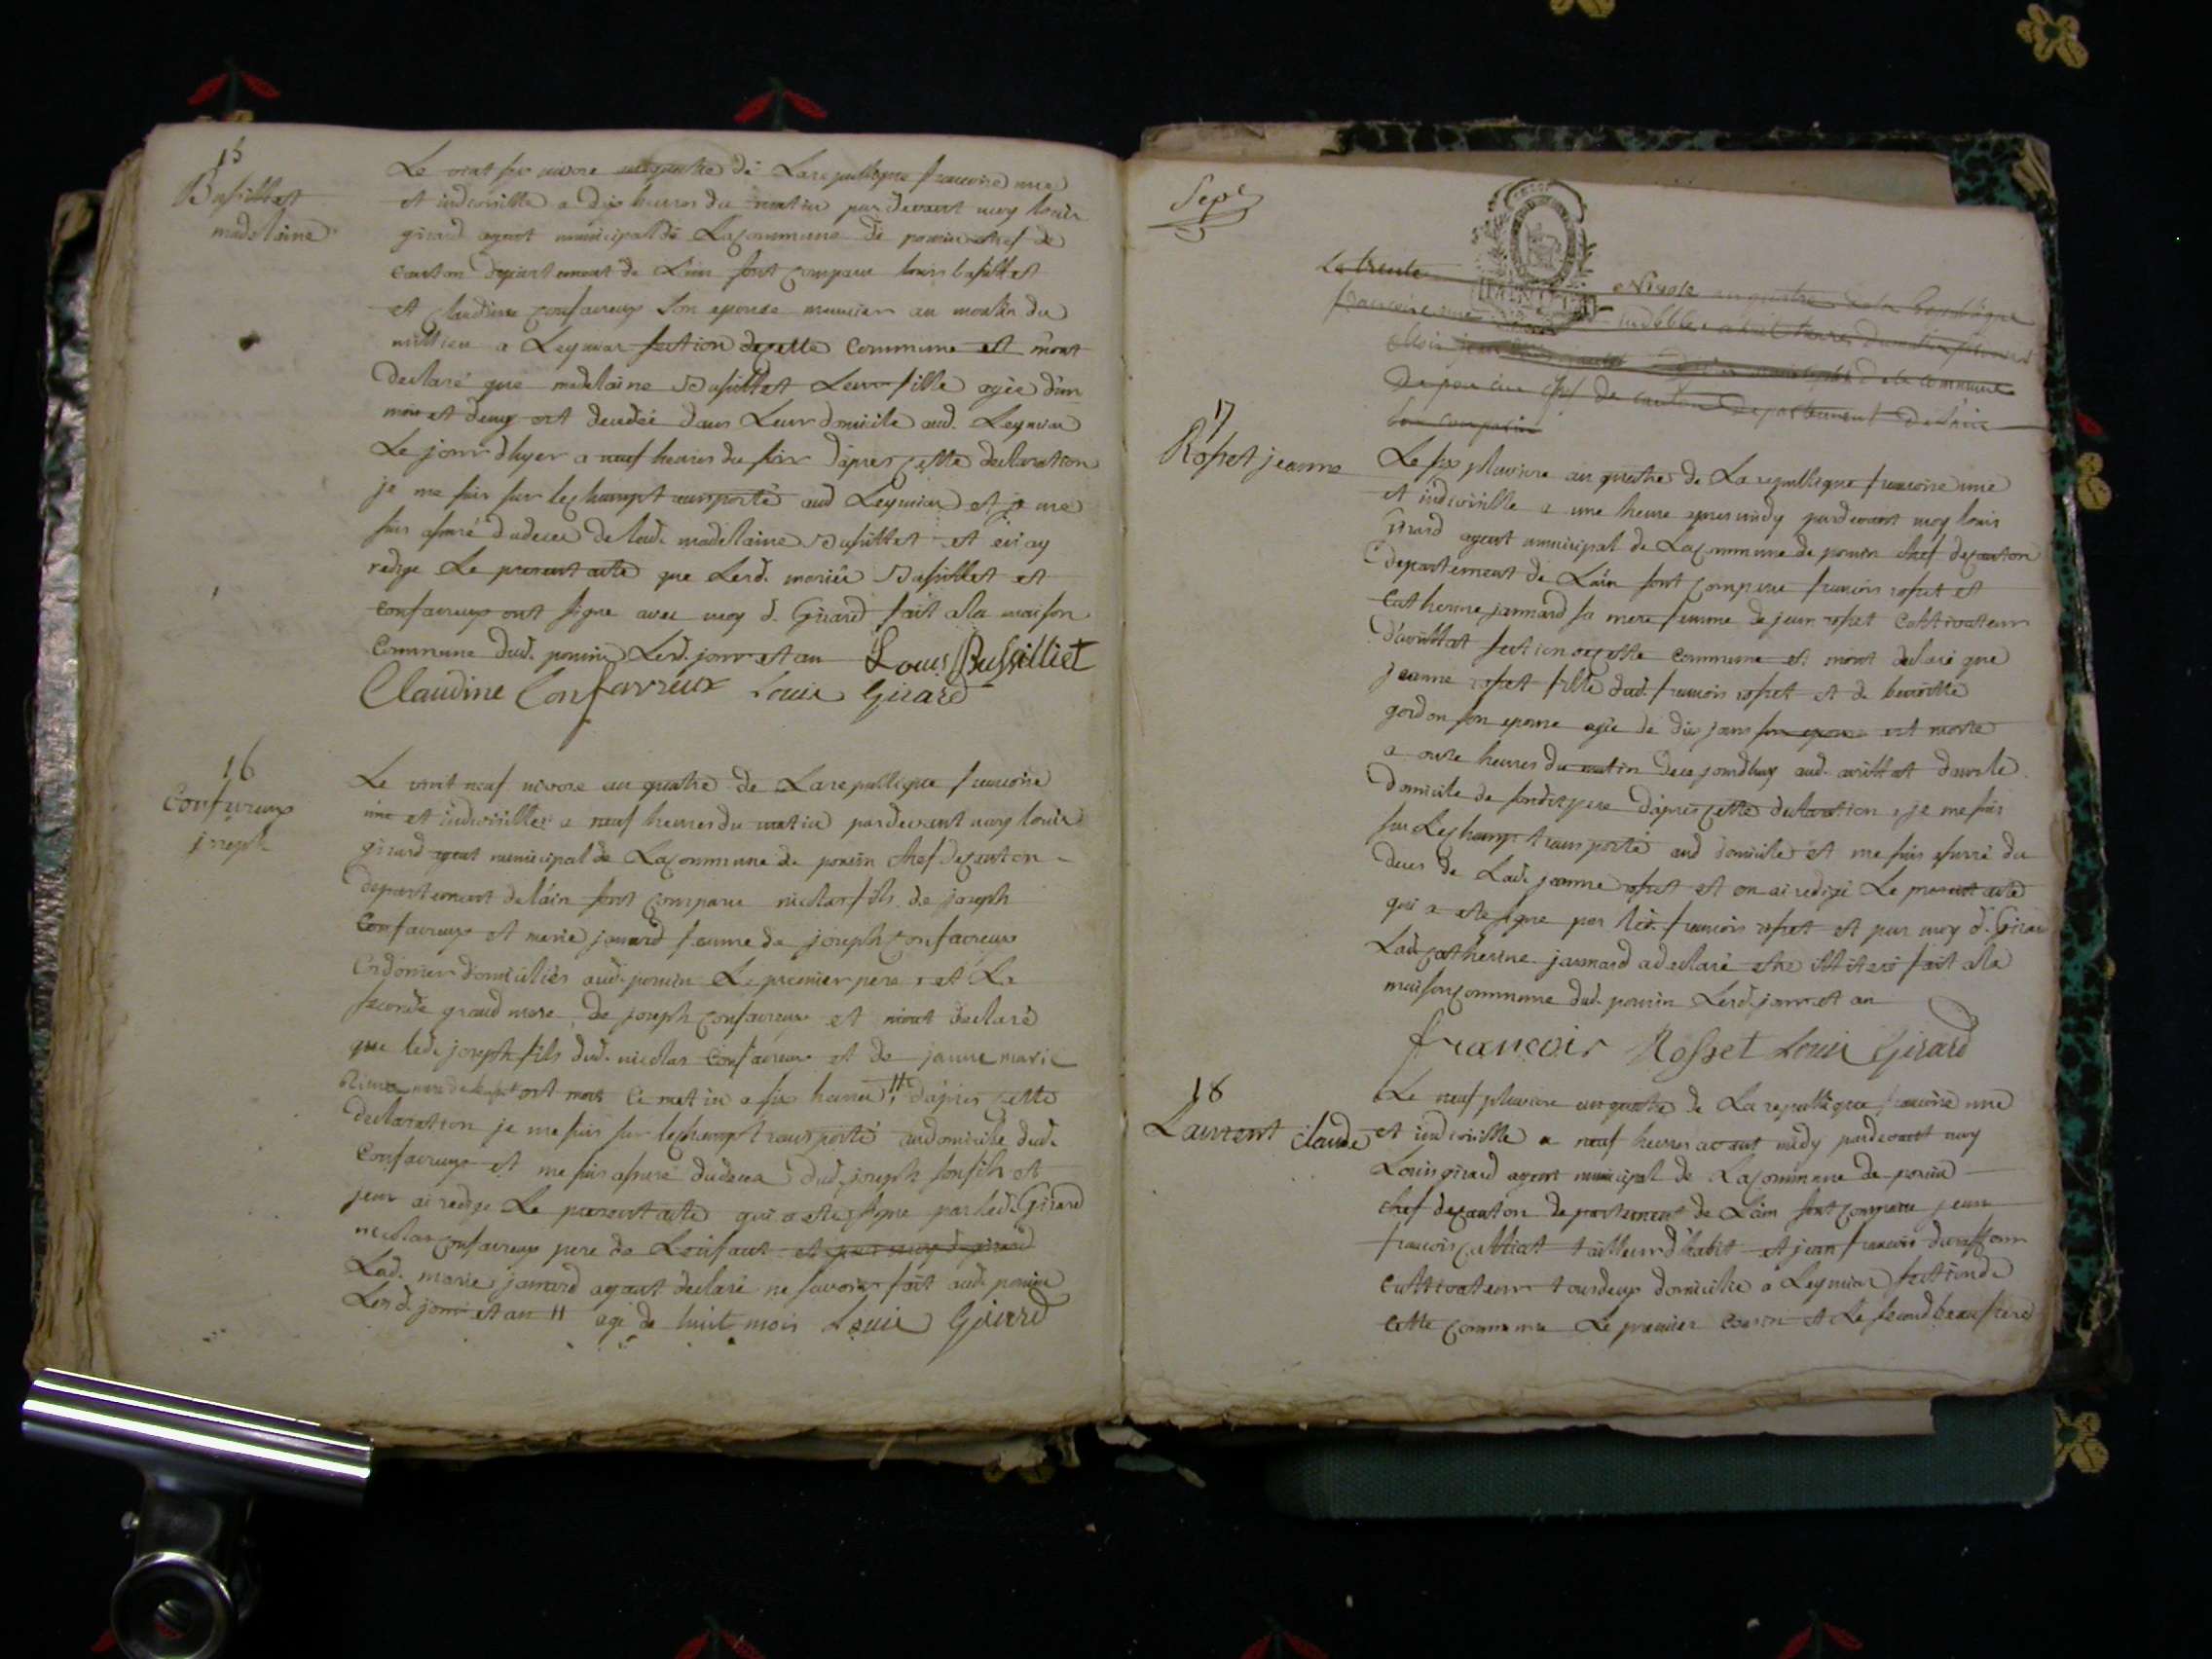 15
Busillet
madelaine
Le vint six nivose an quatre de La republique francoise une
et indivisille a dix heures du matin par devant moy louis
girard agent municipal de La commune de poncin chef de
canton departement de L'ain sont comparu louis busillet
et claudine confavreux son epouse meunier au moulin du
millieu a Leymiac section de cette commune et m'ont
declaré que madelaine Busillet Leur fille agée d'un
mois et demy est decedée dans Leur domicile aud. Leymiac
Le jour d'hyer a neuf heures du soir d'apres cette declaration
je me suis sur le champt transporté aud Leymiac et je me
suis assuré du deces de lad. madelaine Busillet et en ay
redigé Le present acte que Lesd. mariés Busillet et
confavreux ont signe avec moy d. Girard fait a la maison
Commune dud. poncin Lesd. jour et an Louis Bussilliet
Claudine Confavreux Louis Girard
16
Confavreux
joseph
Le vint neuf nivose an quatre de La republique francoise
une et indivisille a neuf heures du matin par devant moy louis
girard agent municipal de La commune de poncin chef de canton
departement de L'ain sont comparu nicolas fils de joseph
Confavreux et marie janard femme de joseph confavreux
Cordonier domiciliés aud. poncin Le premier pere et La
seconde grand mere de joseph confavreux et m'ont declaré
que led. joseph fils dud. nicolas confavreux et de jeanne marie
est mort ce matin a six heures d'apres cette
declaration je me suis sur le champt transporté au domicile dud.
Confavreux et me suis assuré du deces dud. joseph son fils et
j'en ai redigé Le present acte qui a eté signe par led. Girard
nicolas confavreux pere de L'enfant et par moy d. girard
Lad. marie janard ayant declaré ne savoir fait aud. poncin
Lesd. jour et an // agé de huit mois Louis Girard
Sept
Le trente Nivose an quatre de la Republique
francoise une indivisible a huit heures du matin par devant
de la commune
de poncin chef de canton departement de L'ain
sont comparus
17
Rosset jeanne
Le six pluviose an quatre de La republique francoise une
et indivisille a une heure apres midy par devant moy louis
Girard agent municipal de La commune de poncin chef de canton
departement de L'ain sont comparu francois rosset et
Catherine jannard sa mere femme de jean rosset Cultivateur
d'avrillat section de cette commune et m'ont declaré que
jeanne rosset fille dud. francois rosset et de benoitte
gordon son epouse agée de dix jours son epouse est morte
a onze heures du matin de ce jourdhuy aud. avrillat dans le
domicile de sondit pere d'apres cette declaration, je me suis
sur Le champ transporté aud domicile et me suis assuré du
deces de Lad. jeanne rosset et en ai redigé Le present acte
qui a eté signe par led. francois rosset et par moy d. Girard
Lad. catherine jannard a declaré etre illiteré fait a la
maison commune dud. poncin Lesd. jour et an
francoir Rosset Louis Girard
18
Laurent Claude
Le neuf pluviose an quatre de La republique francoise une
et indivisille a neuf heures avant midy par devant moy
Louis girard agent municipal de La commune de poncin
chef de canton departement de L'ain sont comparu jean
francois cattiat tailleur d'habit et jean francois
cultivateur tous deux domicilié a Leymiac section de
cette commune Le premier cousin et Le second beau frere